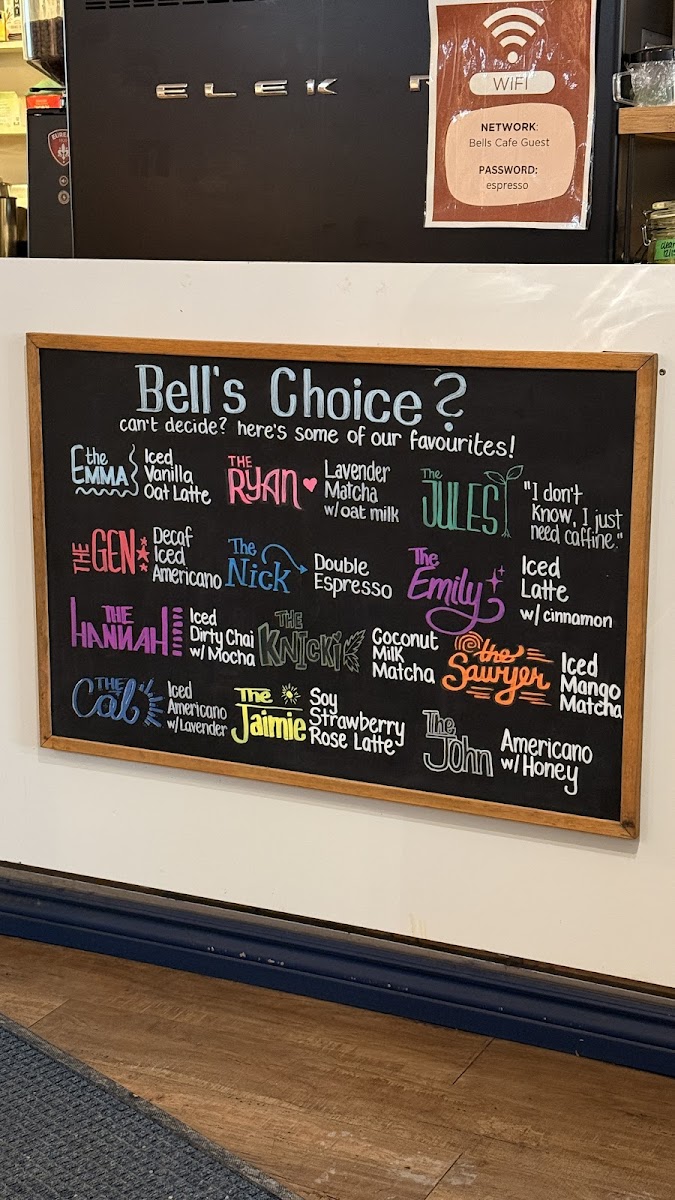 ELEK
WiFi
NETWORK:
Bells Cafe Guest
PASSWORD:
espresso
Bell's Choice?
can't decide? here's some of our favourites!
the EMMA
Iced
Vanilla
Oat Latte
THE RYAN
Lavender
Matcha
w/oat milk
The JULES
"I don't
know, I just
need caffine."
THE GEN
Decaf
Iced
Americano
The Nick
Double
Espresso
The Emily
Iced
Latte
w/cinnamon
THE HANNAH
Iced
Dirty Chai
w/Mocha
THE KNICKi
Coconut
Milk
Matcha
the Sawyer
Iced
Mango
Matcha
THE Cal
Iced
Americano
w/Lavender
The Jaimie
Soy
Strawberry
Rose Latte
The John
Americano
w/Honey